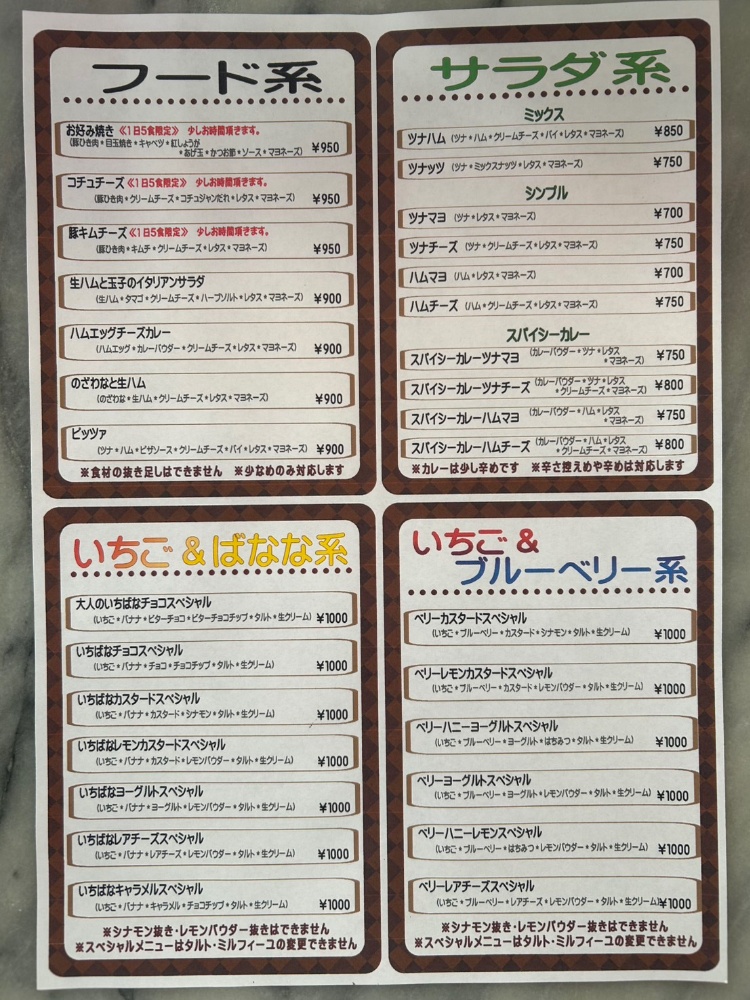 フード系
お好み焼き 《1日5食限定》 少しお時間頂きます。
(豚ひき肉*目玉焼き*キャベツ*紅しょうが
*あげ玉*かつお節*ソース*マヨネーズ) ¥950
コチュチーズ 《1日5食限定》 少しお時間頂きます。
(豚ひき肉*クリームチーズ*コチュジャンだれ*レタス*マヨネーズ) ¥950
豚キムチーズ 《1日5食限定》 少しお時間頂きます。
(豚ひき肉*キムチ*クリームチーズ*レタス*マヨネーズ) ¥950
生ハムと玉子のイタリアンサラダ
(生ハム*タマゴ*クリームチーズ*ハーブソルト*レタス*マヨネーズ) ¥900
ハムエッグチーズカレー
(ハムエッグ*カレーパウダー*クリームチーズ*レタス*マヨネーズ) ¥900
のざわなと生ハム
(のざわな*生ハム*クリームチーズ*レタス*マヨネーズ) ¥900
ピッツァ
(ツナ*ハム*ピザソース*クリームチーズ*パイ*レタス*マヨネーズ) ¥900
※食材の抜き足しはできません ※少なめのみ対応します
サラダ系
ミックス
ツナハム (ツナ*ハム*クリームチーズ*パイ*レタス*マヨネーズ) ¥850
ツナッツ (ツナ*ミックスナッツ*レタス*マヨネーズ) ¥750
シンプル
ツナマヨ (ツナ*レタス*マヨネーズ) ¥700
ツナチーズ (ツナ*クリームチーズ*レタス*マヨネーズ) ¥750
ハムマヨ (ハム*レタス*マヨネーズ) ¥700
ハムチーズ (ハム*クリームチーズ*レタス*マヨネーズ) ¥750
スパイシーカレー
スパイシーカレーツナマヨ (カレーパウダー*ツナ*レタス
*マヨネーズ) ¥750
スパイシーカレーツナチーズ (カレーパウダー*ツナ*レタス
*クリームチーズ*マヨネーズ) ¥800
スパイシーカレーハムマヨ (カレーパウダー*ハム*レタス
*マヨネーズ) ¥750
スパイシーカレーハムチーズ (カレーパウダー*ハム*レタス
*クリームチーズ*マヨネーズ) ¥800
※カレーは少し辛めです ※辛さ控えめや辛めは対応します
いちご&ばなな系
大人のいちばなチョコスペシャル
(いちご*バナナ*ビターチョコ*ビターチョコチップ*タルト*生クリーム) ¥1000
いちばなチョコスペシャル
(いちご*バナナ*チョコ*チョコチップ*タルト*生クリーム) ¥1000
いちばなカスタードスペシャル
(いちご*バナナ*カスタード*シナモン*タルト*生クリーム) ¥1000
いちばなレモンカスタードスペシャル
(いちご*バナナ*カスタード*レモンパウダー*タルト*生クリーム) ¥1000
いちばなヨーグルトスペシャル
(いちご*バナナ*ヨーグルト*レモンパウダー*タルト*生クリーム) ¥1000
いちばなレアチーズスペシャル
(いちご*バナナ*レアチーズ*レモンパウダー*タルト*生クリーム) ¥1000
いちばなキャラメルスペシャル
(いちご*バナナ*キャラメル*チョコチップ*タルト*生クリーム) ¥1000
※シナモン抜き・レモンパウダー抜きはできません
※スペシャルメニューはタルト・ミルフィーユの変更できません
いちご&
ブルーベリー系
ベリーカスタードスペシャル
(いちご*ブルーベリー*カスタード*シナモン*タルト*生クリーム) ¥1000
ベリーレモンカスタードスペシャル
(いちご*ブルーベリー*カスタード*レモンパウダー*タルト*生クリーム) ¥1000
ベリーハニーヨーグルトスペシャル
(いちご*ブルーベリー*ヨーグルト*はちみつ*タルト*生クリーム) ¥1000
ベリーヨーグルトスペシャル
(いちご*ブルーベリー*ヨーグルト*レモンパウダー*タルト*生クリーム) ¥1000
ベリーハニーレモンスペシャル
(いちご*ブルーベリー*はちみつ*レモンパウダー*タルト*生クリーム) ¥1000
ベリーレアチーズスペシャル
(いちご*ブルーベリー*レアチーズ*レモンパウダー*タルト*生クリーム) ¥1000
※シナモン抜き・レモンパウダー抜きはできません
※スペシャルメニューはタルト・ミルフィーユの変更できません